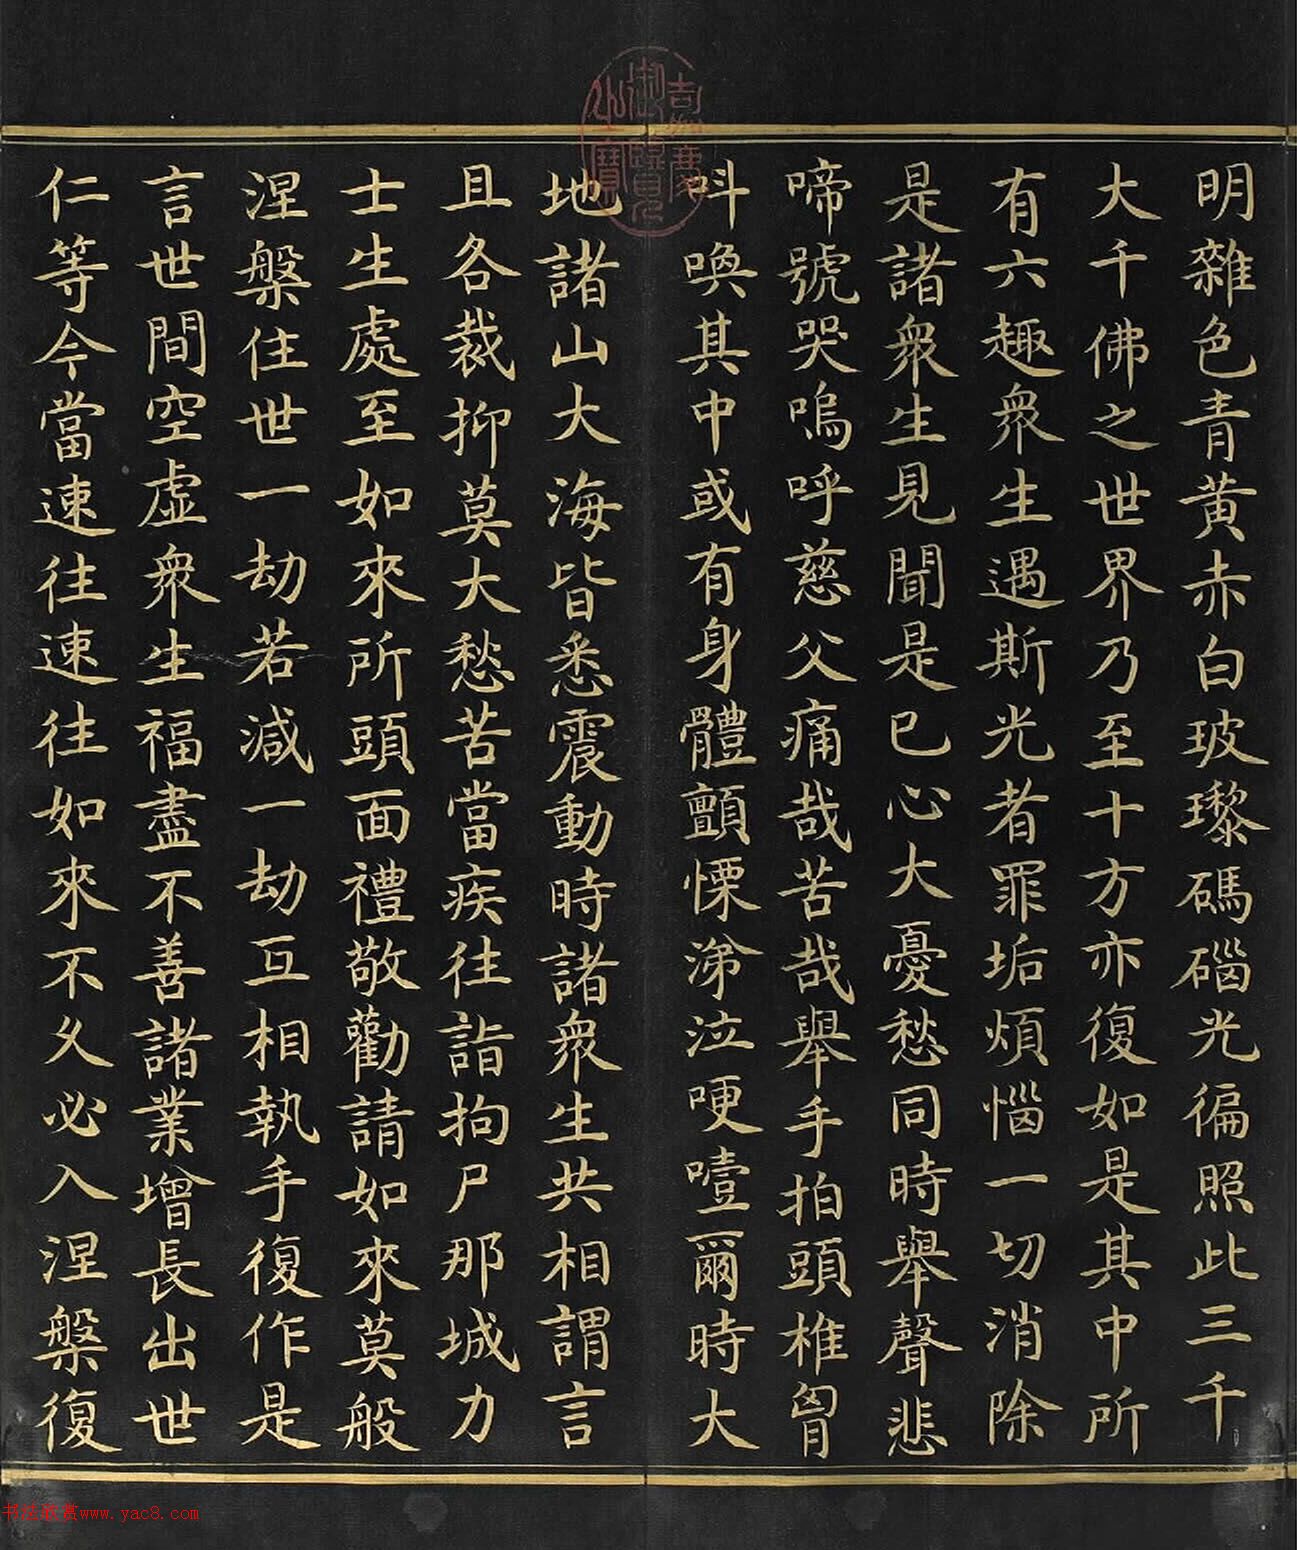 明雜色青黃赤白玻瓈碼碯光徧照此三千
大千佛之世界乃至十方亦復如是其中所
有六趣衆生遇斯光者罪垢煩惱一切消除
是諸衆生見聞是已心大憂愁同時舉聲悲
啼號哭嗚呼慈父痛哉苦哉舉手拍頭椎胷
呌喚其中或有身體顫慄涕泣哽噎爾時大
地諸山大海皆悉震動時諸衆生共相謂言
且各裁抑莫大愁苦當疾往詣拘尸那城力
士生處至如來所頭面禮敬勸請如來莫般
涅槃住世一劫若減一劫互相執手復作是
言世間空虛衆生福盡不善諸業增長出世
仁等今當速往速往如來不久必入涅槃復
嘉慶御覽之寶
书法欣赏www.yac8.com